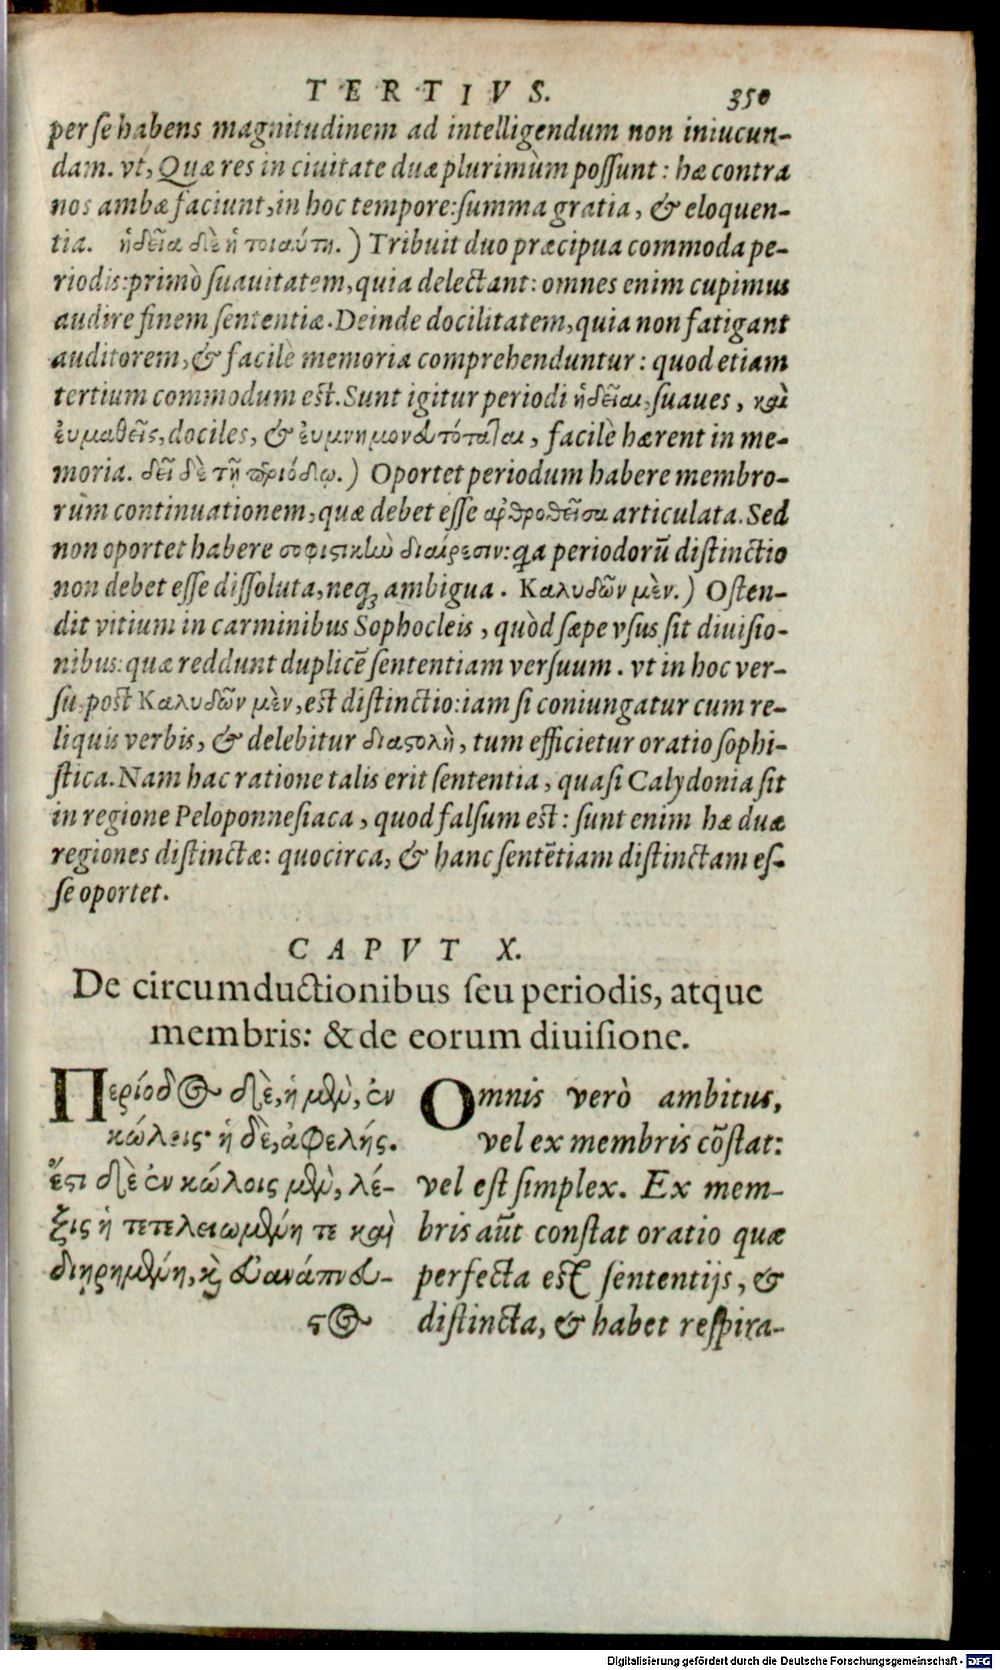 TERTIVS. 350
per se habens magnitudinem ad intelligendum non iniucun-
dam. vt, Quæ res in ciuitate duæ plurimùm possunt: hæ contra
nos ambæ faciunt, in hoc tempore: summa gratia, & eloquen-
tia. ἡδεῖα δὲ ἡ τοιαύτη.) Tribuit duo præcipua commoda pe-
riodis: primò suauitatem, quia delectant: omnes enim cupimus
audire finem sententiæ. Deinde docilitatem, quia non fatigant
auditorem, & facilè memoria comprehenduntur: quod etiam
tertium commodum est. Sunt igitur periodi ἡδεῖαι, suaues, καὶ
ἐυμαθεῖς, dociles, & ἐυμνημονευτόταται, facilè hærent in me-
moria. δεῖ δὲ τῇ περιόδῳ.) Oportet periodum habere membro-
rum continuationem, quæ debet esse ἀρθροθεῖσα articulata. Sed
non oportet habere σοφιστικὼ διαίρεσιν: quia periodorū distinctio
non debet esse dissoluta, neq; ambigua. Καλυδῶν μὲν.) Osten-
dit vitium in carminibus Sophocleis, quòd sæpe vsus sit diuisio-
nibus: quæ reddunt duplicē sententiam versuum. vt in hoc ver-
su post Καλυδῶν μὲν, est distinctio: iam si coniungatur cum re-
liquis verbis, & delebitur διαστολὴ, tum efficietur oratio sophi-
stica. Nam hac ratione talis erit sententia, quasi Calydonia sit
in regione Peloponnesiaca, quod falsum est: sunt enim hæ duæ
regiones distinctæ: quocirca, & hanc sentētiam distinctam es-
se oportet.
CAPVT X.
De circumductionibus seu periodis, atque
membris: & de eorum diuisione.
Περίοδος δὲ, ἡ μὲν, ἐν
κώλοις· ἡ δὲ, ἀφελής.
ἔστι δὲ ἐν κώλοις μὲν, λέ-
ξις ἡ τετελειωμένη τε καὶ
διῃρημένη, καὶ εὐανάπνευ-
στος
Omnis verò ambitus,
vel ex membris cōstat:
vel est simplex. Ex mem-
bris aūt constat oratio quæ
perfecta est sententijs, &
distincta, & habet respira-
Digitalisierung gefördert durch die Deutsche Forschungsgemeinschaft - DFG